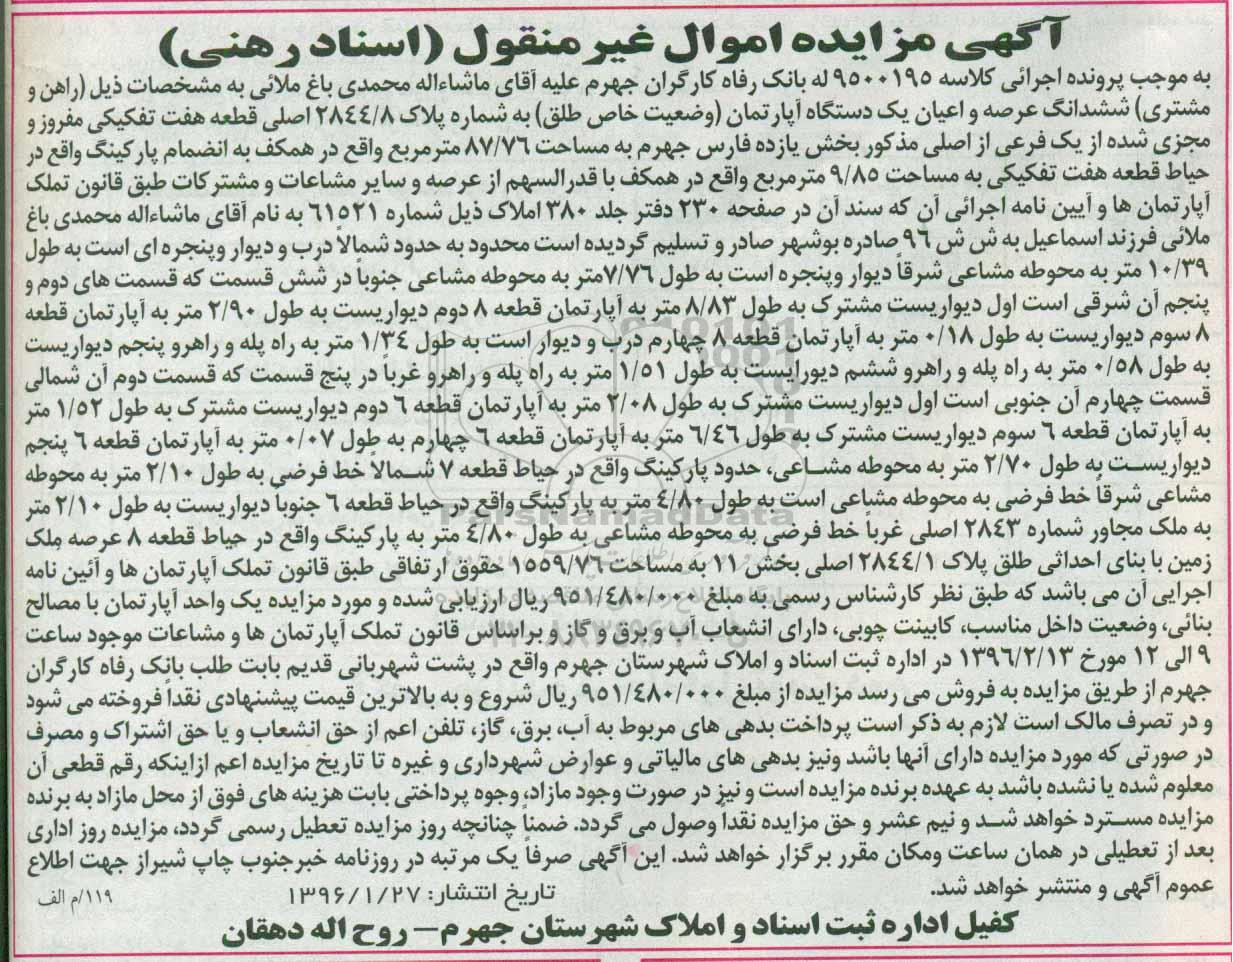 آگهی مزایده اموال غیر منقول (اسناد رهنی)
به موجب پرونده اجرائی کلاسه ۹۵۰۰۱۹۵ له بانک رفاه کارگران جهرم علیه آقای ماشاءاله محمدی باغ ملائی به مشخصات ذیل (راهن و
مشتری) ششدانگ عرصه و اعیان یک دستگاه آپارتمان (وضعیت خاص طلق) به شماره پلاک ۲۸۴۴/۸ اصلی قطعه هفت تفکیکی مفروز و
مجزی شده از یک فرعی از اصلی مذکور بخش یازده فارس جهرم به مساحت ۸۷/۷۶ مترمربع واقع در همکف به انضمام پارکینگ واقع در
حیاط قطعه هفت تفکیکی به مساحت ۹/۸۵ مترمربع واقع در همکف با قدرالسهم از عرصه و سایر مشاعات و مشترکات طبق قانون تملک
آپارتمان ها و آیین نامه اجرائی آن که سند آن در صفحه ۲۳۰ دفتر جلد ۳۸۰ املاک ذیل شماره ۶۱۵۲۱ به نام آقای ماشاءاله محمدی باغ
ملائی فرزند اسماعیل به ش ش ۹۶ صادره بوشهر صادر و تسلیم گردیده است محدود به حدود شمالاً درب و دیوار وپنجره ای است به طول
۱۰/۳۹ متر به محوطه مشاعی شرقاً دیوار وپنجره است به طول ۷/۷۶متر به محوطه مشاعی جنوباً در شش قسمت که قسمت های دوم و
پنجم آن شرقی است اول دیواریست مشترک به طول ۸/۸۳ متر به آپارتمان قطعه ۸ دوم دیواریست به طول ۲/۹۰ متر به آپارتمان قطعه
۸ سوم دیواریست به طول ۰/۱۸ متر به آپارتمان قطعه ۸ چهارم درب و دیوار است به طول ۱/۳۴ متر به راه پله و راهرو پنجم دیواریست
به طول ۰/۵۸ متر به راه پله و راهرو ششم دیورایست به طول ۱/۵۱ متر به راه پله و راهرو غرباً در پنج قسمت که قسمت دوم آن شمالی
قسمت چهارم آن جنوبی است اول دیواریست مشترک به طول ۲/۰۸ متر به آپارتمان قطعه ۶ دوم دیواریست مشترک به طول ۱/۵۲ متر
به آپارتمان قطعه ۶ سوم دیواریست مشترک به طول ۶/۴۶ متر به آپارتمان قطعه ۶ چهارم به طول ۰/۰۷ متر به آپارتمان قطعه ۶ پنجم
دیواریست به طول ۲/۷۰ متر به محوطه مشاعی، حدود پارکینگ واقع در حیاط قطعه ۷ شمالاً خط فرضی به طول ۲/۱۰ متر به محوطه
مشاعی شرقاً خط فرضی به محوطه مشاعی است به طول ۴/۸۰ متر به پارکینگ واقع در حیاط قطعه ۶ جنوباً دیواریست به طول ۲/۱۰ متر
به ملک مجاور شماره ۲۸۴۳ اصلی غرباً خط فرضی به محوطه مشاعی به طول ۴/۸۰ متر به پارکینگ واقع در حیاط قطعه ۸ عرصه ملک
زمین با بنای احداثی طلق پلاک ۲۸۴۴/۱ اصلی بخش ۱۱ به مساحت ۱۵۵۹/۷۶ حقوق ارتفاقی طبق قانون تملک آپارتمان ها و آئین نامه
اجرایی آن می باشد که طبق نظر کارشناس رسمی به مبلغ ۹۵۱/۴۸۰/۰۰۰ ریال ارزیابی شده و مورد مزایده یک واحد آپارتمان با مصالح
بنائی، وضعیت داخل مناسب، کابینت چوبی، دارای انشعاب آب و برق و گاز و براساس قانون تملک آپارتمان ها و مشاعات موجود ساعت
۹ الی ۱۲ مورخ ۱۳۹۶/۲/۱۳ در اداره ثبت اسناد و املاک شهرستان جهرم واقع در پشت شهربانی قدیم بابت طلب بانک رفاه کارگران
جهرم از طریق مزایده به فروش می رسد مزایده از مبلغ ۹۵۱/۴۸۰/۰۰۰ ریال شروع و به بالاترین قیمت پیشنهادی نقداً فروخته می شود
و در تصرف مالک است لازم به ذکر است پرداخت بدهی های مربوط به آب، برق، گاز، تلفن اعم از حق انشعاب و یا حق اشتراک و مصرف
در صورتی که مورد مزایده دارای آنها باشد ونیز بدهی های مالیاتی و عوارض شهرداری و غیره تا تاریخ مزایده اعم ازاینکه رقم قطعی آن
معلوم شده یا نشده باشد به عهده برنده مزایده است و نیز در صورت وجود مازاد، وجوه پرداختی بابت هزینه های فوق از محل مازاد به برنده
مزایده مسترد خواهد شد و نیم عشر و حق مزایده نقداً وصول می گردد. ضمناً چنانچه روز مزایده تعطیل رسمی گردد، مزایده روز اداری
بعد از تعطیلی در همان ساعت ومکان مقرر برگزار خواهد شد. این آگهی صرفاً یک مرتبه در روزنامه خبرجنوب چاپ شیراز جهت اطلاع
عموم آگهی و منتشر خواهد شد.
تاریخ انتشار: ۱۳۹۶/۱/۲۷
۱۱۹/م الف
کفیل اداره ثبت اسناد و املاک شهرستان جهرم – روح اله دهقان
ParsNamadData